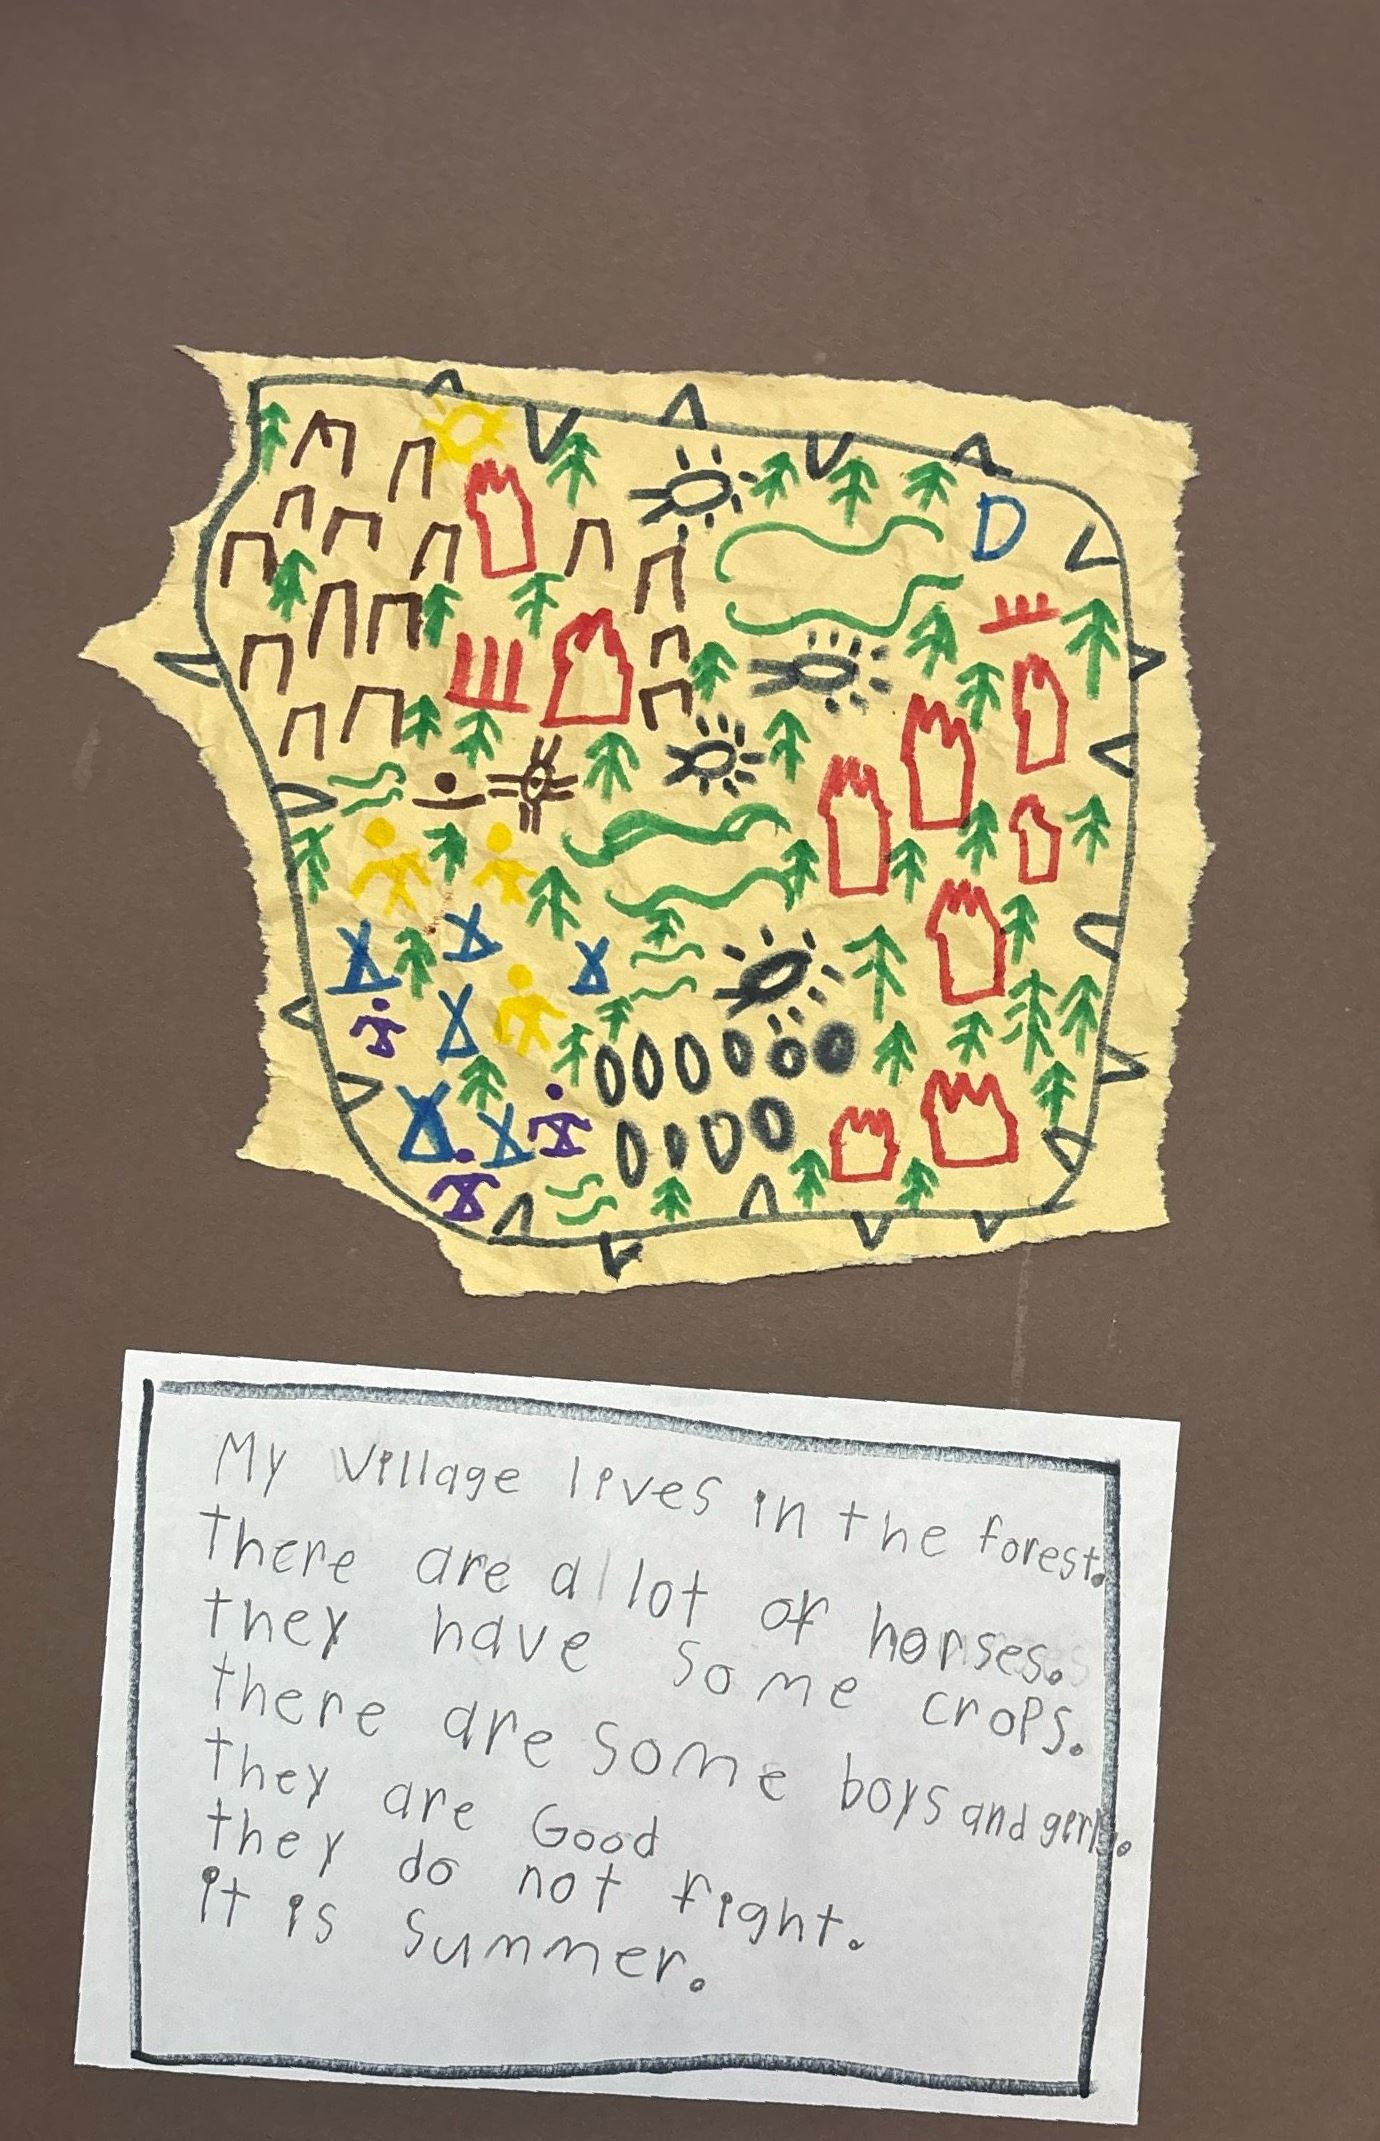 D
My village lives in the forest.
there are a lot of horses.
they have some crops.
there are some boys and gerls.
they are Good
they do not fight.
it is Summer.